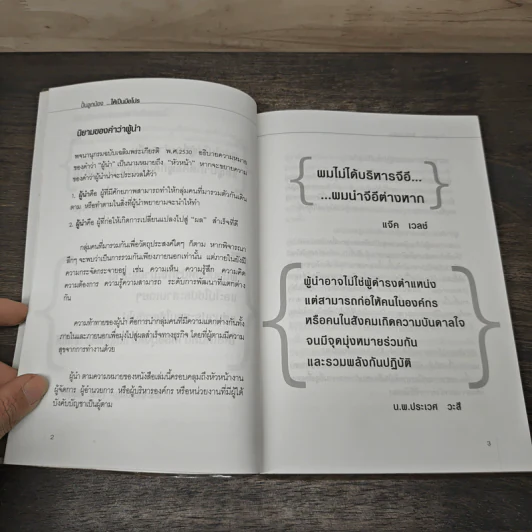 ปั้นลูกน้อง ...ให้เป็นมือโปร
นิยามของคำว่าผู้นำ
พจนานุกรมฉบับเฉลิมพระเกียรติ พ.ศ.2530 อธิบายความหมาย
ของคำว่า "ผู้นำ" เป็นนามหมายถึง "หัวหน้า" หากจะขยายความ
ของคำว่าผู้นำน่าจะประมวลได้ว่า
1. ผู้นำคือ ผู้ที่มีศักยภาพสามารถทำให้กลุ่มคนที่มารวมตัวกันเดิน
ตาม หรือทำตามในสิ่งที่ผู้นำพยายามจะนำให้ทำ
2. ผู้นำคือ ผู้ที่ก่อให้เกิดการเปลี่ยนแปลงไปสู่ "ผล" สำเร็จที่ดี
กลุ่มคนที่มารวมกันเพื่อวัตถุประสงค์ใดๆ ก็ตาม หากพิจารณา
ลึกๆ จะพบว่าเป็นการรวมกันเพียงภายนอกเท่านั้น แต่ภายในยังมี
ความกระจัดกระจายอยู่ เช่น ความเห็น ความรู้สึก ความคิด
ความต้องการ ความรู้ความสามารถ ระดับการพัฒนาที่แตกต่าง
กัน
ความท้าทายของผู้นำ คือการนำกลุ่มคนที่มีความแตกต่างกันทั้ง
ภายในและภายนอกเพื่อมุ่งไปสู่ผลสำเร็จทางธุรกิจ โดยที่ผู้ตามมีความ
สุขจากการทำงานด้วย
ผู้นำ ตามความหมายของหนังสือเล่มนี้ครอบคลุมถึงหัวหน้างาน
ผู้จัดการ ผู้อำนวยการ หรือผู้บริหารองค์กร หรือหน่วยงานที่มีผู้ใต้
บังคับบัญชาเป็นผู้ตาม
2
ผมไม่ได้บริหารจีอี...
...ผมนำจีอีต่างหาก
แจ๊ค เวลช์
ผู้นำอาจไม่ใช่ผู้ดำรงตำแหน่ง
แต่สามารถก่อให้คนในองค์กร
หรือคนในสังคมเกิดความบันดาลใจ
จนมีจุดมุ่งหมายร่วมกัน
และรวมพลังกันปฏิบัติ
น.พ.ประเวศ วะสี
3